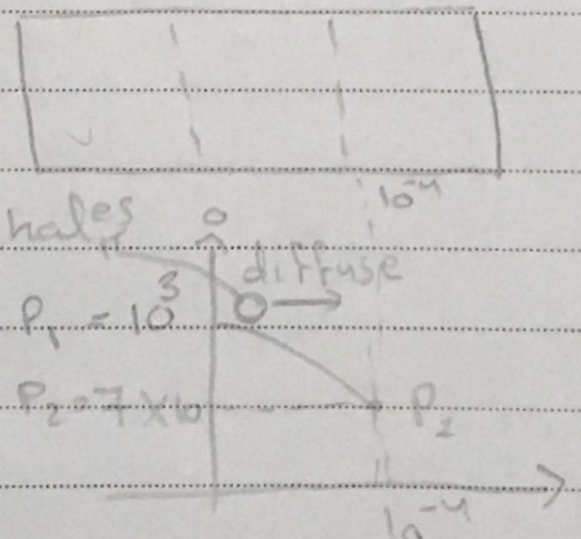 10⁻⁴
holes
0
diffuse
P₁ = 10³
P₂ = 7 × 10
P₂
10⁻⁴